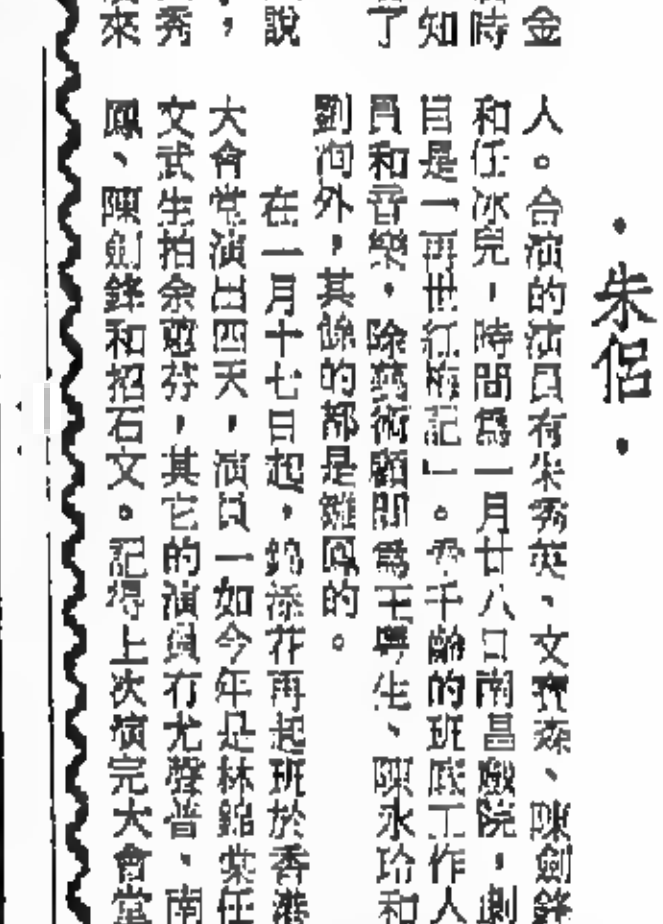 ·朱侶·
金
人。合演的演員有朱秀英、文寶森、陳劍鋒
時
和任冰兒,時間爲一月廿八日南昌戲院,劇
知
目是「再世紅梅記」。李千齡的班底工作人
了
員和音樂,除藝術顧問爲王粵生、陳永玲和
劉洵外,其餘的都是雛鳳的。
說
在一月十七日起,錦添花再起班於香港
,
大會堂演出四天,演員一如今年是林錦棠任
秀
文武生拍余蕙芬,其它的演員有尤聲普、南
來
鳳、陳劍鋒和招石文。記得上次演完大會堂